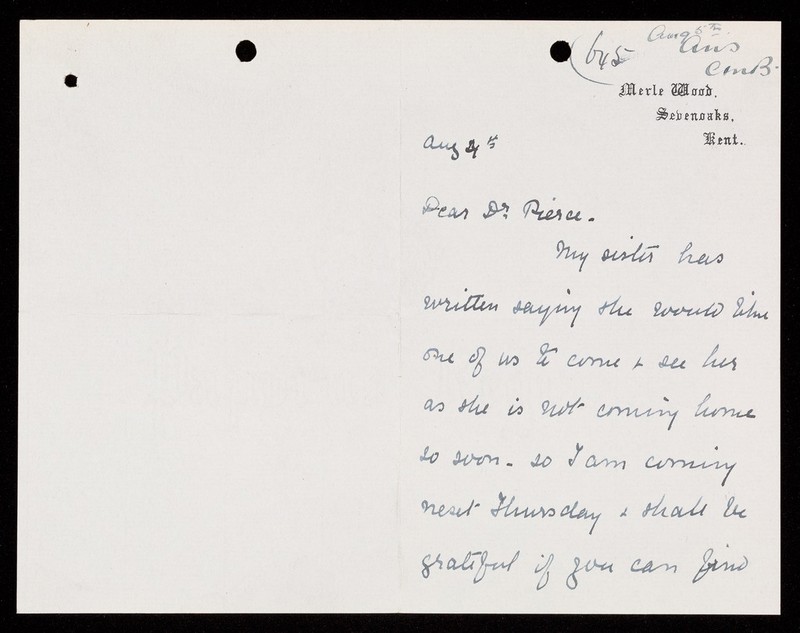 Aug 5th
645 Ans
ConB.
Merle Wood,
Sevenoaks,
Kent.
Aug 4th
Dear Dr Pierce.
My sister has
written saying she would like
one of us to come & see her
as she is not coming home
so soon. so I am coming
next Thursday & shall be
grateful if you can find